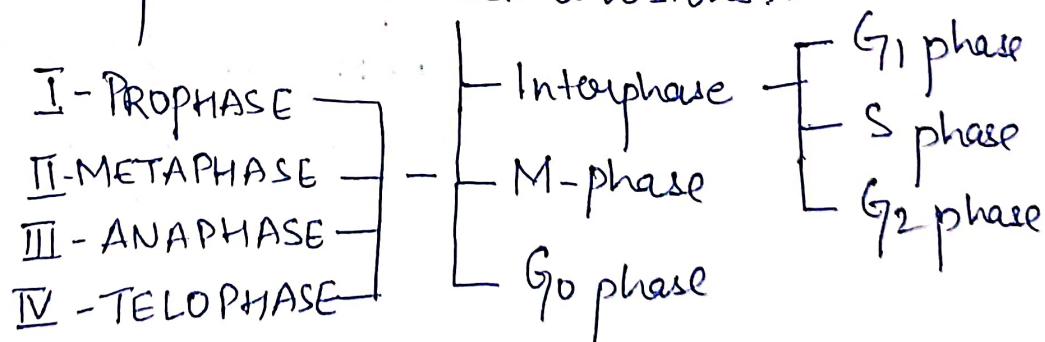 I - PROPHASE
II - METAPHASE
III - ANAPHASE
IV - TELOPHASE
Interphase
M-phase
G0 phase
G1 phase
S phase
G2 phase